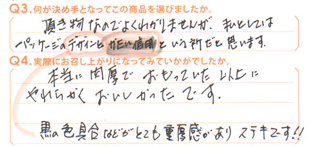 Q3.何が決め手となってこの商品を選びましたか。
頂き物なのでよくわかりませんが、私としては
パッケージのデザインと という所だと思います。
Q4.実際にお召し上がりになってみていかがでしたか。
本当に肉厚で おもっていた 以上に
やわらかく おいしかった です。
黒の色具合などがとても重厚感があり ステキです!!